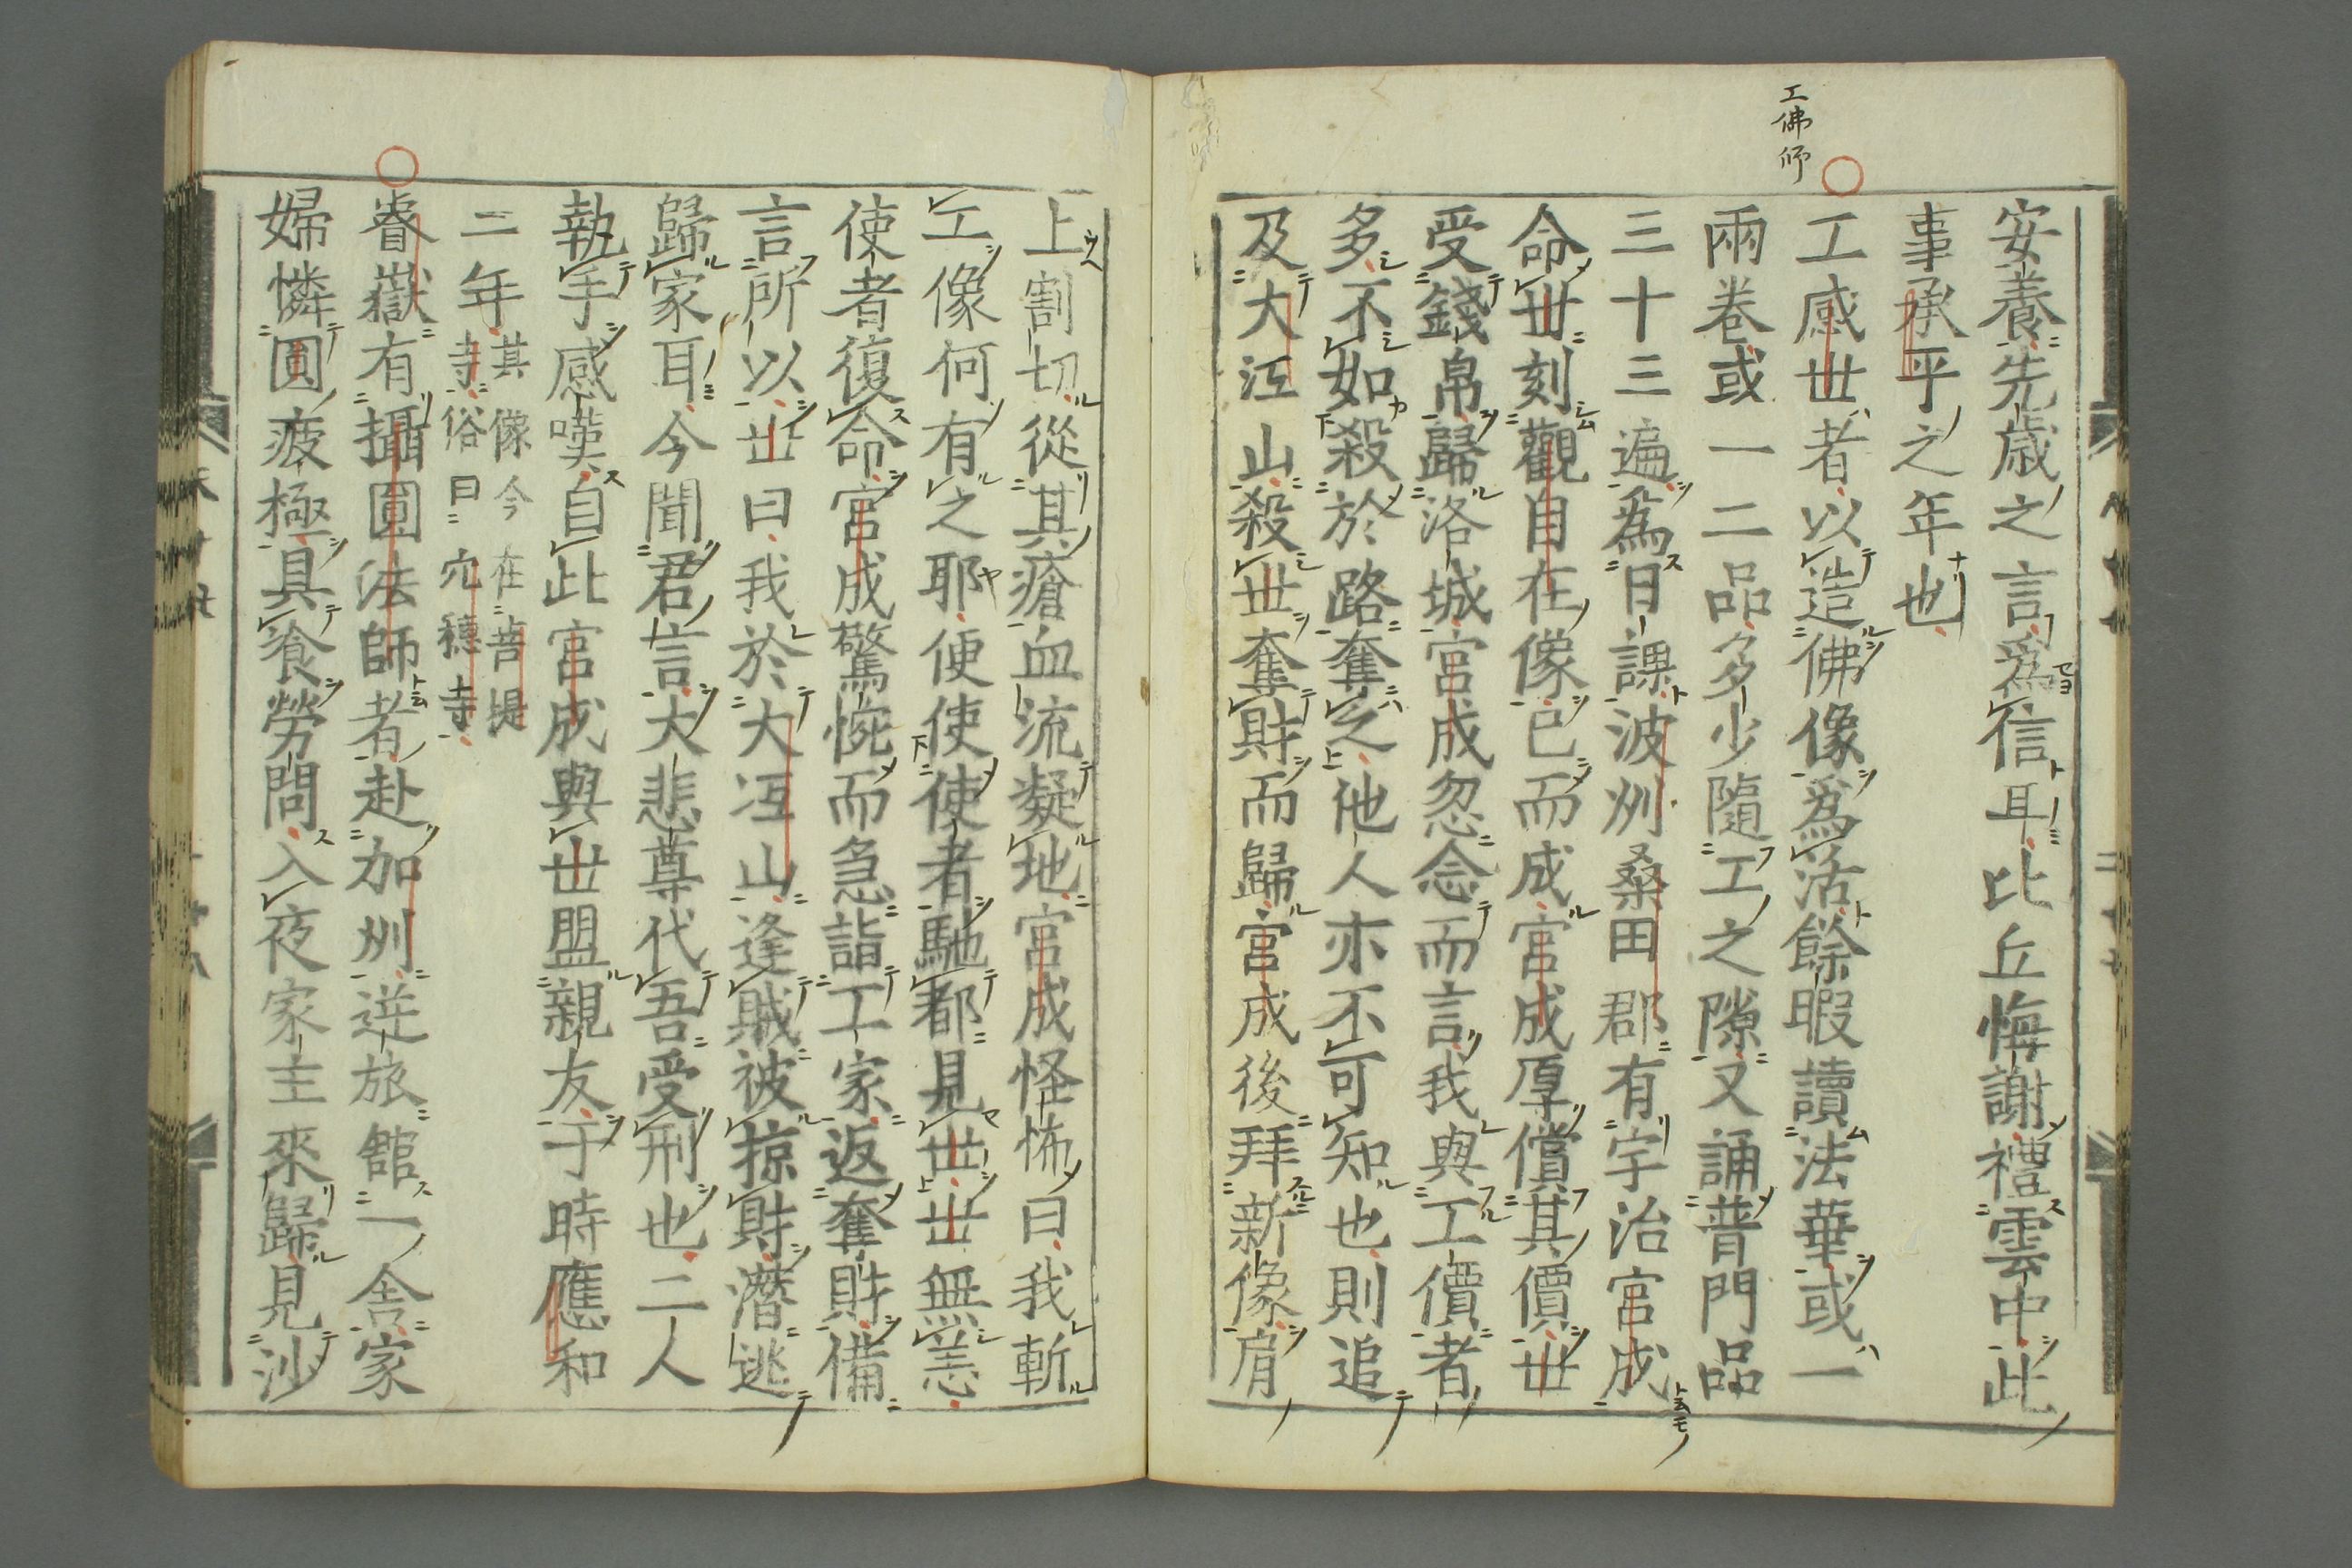 工佛师
安養先歳之言爲信耳比丘悔謝禮雲中此
事承平之年也
工感世者以造佛像爲活餘暇讀法華或一
兩卷或一二品多少隨工之隙又誦普門品
三十三遍爲日課波州桑田郡有宇治宮成
命世刻觀自在像已而成宮成厚償其價世
受錢帛歸洛城宮成忽念而言我與工價者
多不如殺於路奪之他人亦不可知也則追
及大江山殺世奪財而歸宮成後拜新像肩
上割切從其瘡血流凝地宮成怪怖曰我斬
工像何有之耶便使使者馳都見世世無恙
使者復命宮成驚惋而急詣工家返奪財備
言所以世曰我於大江山逢賊被掠財潛逃
歸家耳今聞君言大悲尊代吾受刑也二人
執手感嘆自此宮成與世盟親友于時應和
二年其像今在菩提
寺俗曰穴穗寺
睿嶽有攝圓法師者赴加州逆旅舘一舍家
婦憐圓疲極具飡勞問入夜家主來歸見沙